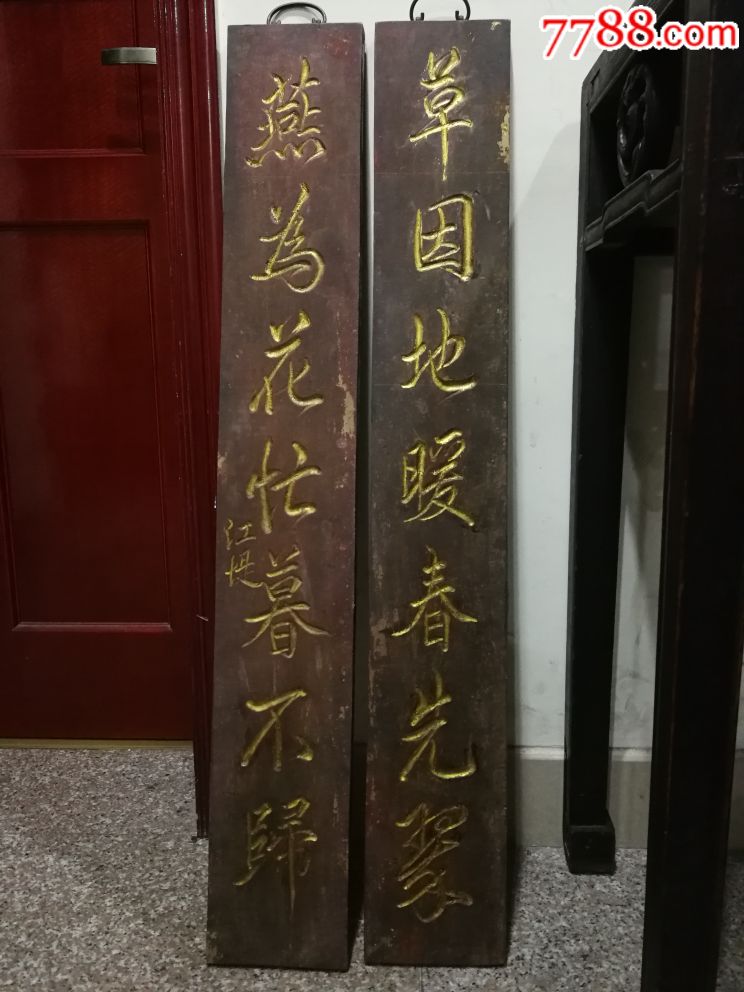 7788.com
草因地暖春先翠
燕為花忙暮不歸